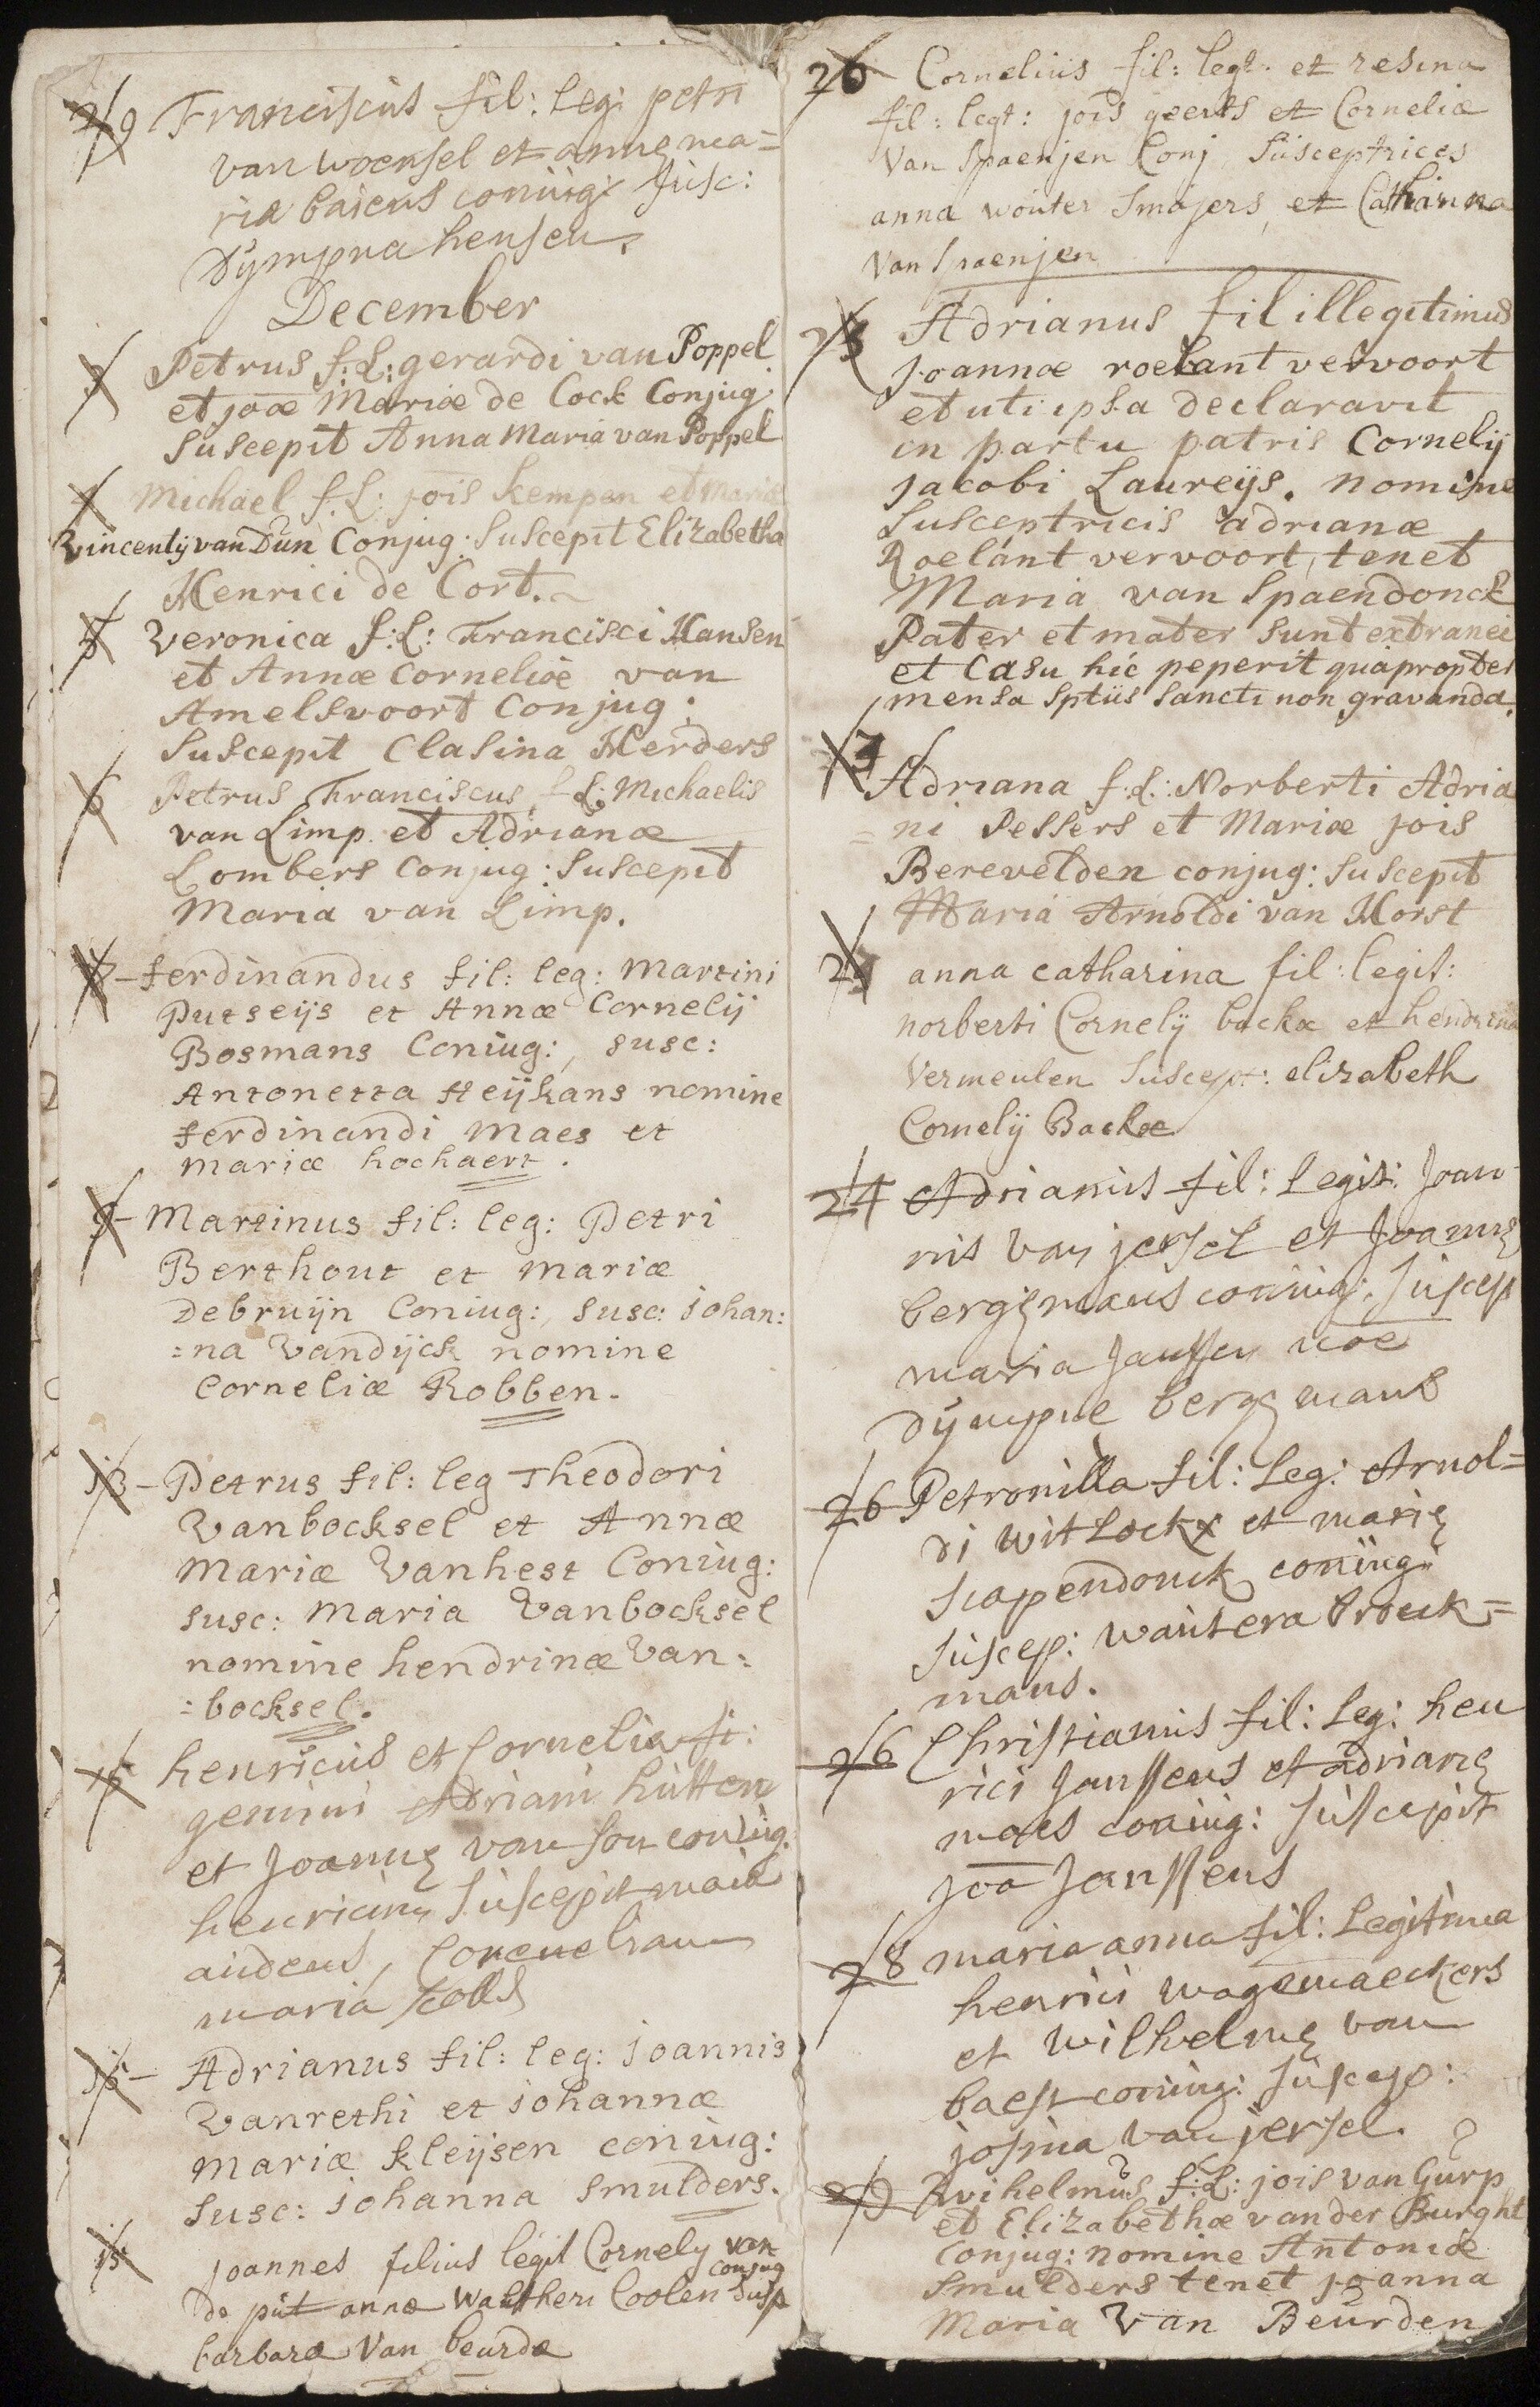 29 Franciscus fil: leg: petri
van woensel et annę ma=
ria baiens coniug: susc:
dympna hensen.
December
Petrus f:L: gerardi van Poppel
et joae Mariæ de Cock Conjug:
Suscepit Anna Maria van Poppel
4 Michael f.L: jois kempen et Mariæ
Vincentij van Dun Conjug: Suscepit Elizabetha
Henrici de Cort.
Veronica f:L: Francisci Hansen
et Annæ Corneliæ van
Amelsvoort Conjug:
Suscepit Clasina Herders
6 Petrus Franciscus f L: Michaelis
van Limp. et Adrianæ
Lombers Conjug: Suscepit
Maria van Limp.
8 - ferdinandus fil: leg: Martini
Putseijs et Annæ Cornelij
Bosmans Coniug:, susc:
Antonetta Heijkans nomine
ferdinandi Maes et
Mariæ hochaert.
9 - Martinus fil: leg: Petri
Berthout et Mariæ
Debruijn Coniug:, susc: johan:
:na Vandijck nomine
Corneliæ Robben.
13 - Petrus fil: leg Theodori
Vanbocksel et Annæ
Mariæ Vanhest Coniug:
susc: Maria Vanbocksel
nomine hendrinæ Van:
:bocksel.
15 henricus et Cornelia fi:
gemini Adriani hutten
et Joannę van son coniug.
henricum suscepit maria
maria
15 - Adrianus fil: leg: joannis
Vanrethi et johannæ
Mariæ kleijsen coniug:
susc: johanna smulders.
15 joannes filius legit Cornely van
conjug
de put annæ Waltheri Coolen susp
barbara Van beurdæ
20 Cornelius fil: legt. et resina
fil: legt: jois geerts et Corneliæ
Van Spaenjen Conj Susceptrices
anna wouter Smajers, et Catharina
Van Spaenjen
23 Adrianus fil illegitimus
Joannæ roelant vervoort
et uti ipsa declaravit
in partu patris Cornelij
Jacobi Laureijs. nomine
Susceptricis adrianæ
Roelant vervoort, tenet
Maria van Spaendonck
Pater et mater sunt extranei
et Casu hic peperit quapropter
mensa sptûs sancti non gravanda.
Adriana f.L.: Norberti Adria
= ni Pessers et Mariæ jois
Berevelden conjug: Suscepit
Maria Arnoldi van Horst
anna catharina fil: legit:
norberti Cornelij backx et hendrina
Vermeulen Suscept: elizabeth
Cornelij Backx
24 Adrianus fil: Legit: Joan-
nis van jersel et Joannę
bergęmans coniug: suscep
maria Janssen noe
dympne bergęmans
26 Petronilla fil: Leg: Arnol=
di witlockx et marię
scapendonck coniug:
suscep: wautera broeck=
mans.
26 Christianus fil: Leg: hen
rici Janssens et adrianę
maes coniug: suscepit
joa Janssens
28 maria anna fil: Legitima
henrici wagemaeckers
et wilhelmę van
baest coniug: suscep:
josina van jersel.
29 Wihelmus f:L: jois van Gurp
et Elizabethæ vander Burght
Conjug: nomine Antoniæ
Smulders tenet joanna
Maria Van Beurden